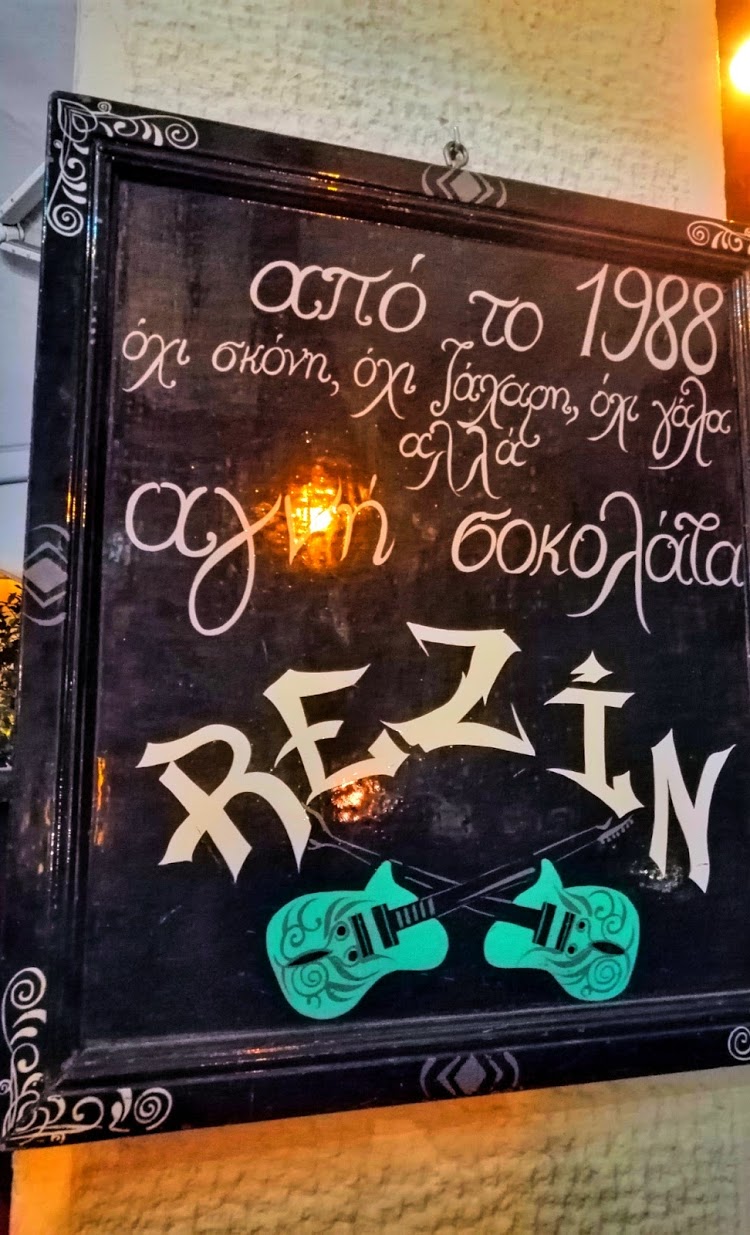 από το 1988
όχι σκόνη, όχι ζάχαρη, όχι γάλα
αλλά
αγνή σοκολάτα
REZIN